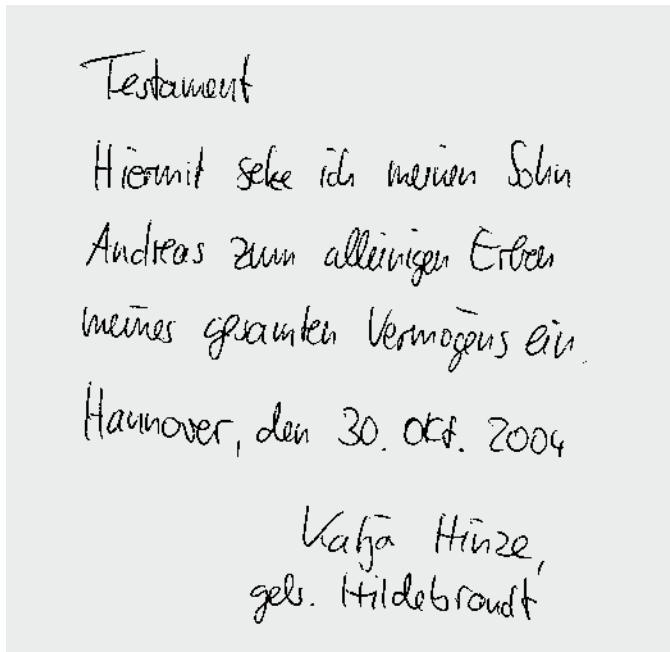 Testament
Hiermit setze ich meinen Sohn
Andreas zum alleinigen Erben
meines gesamten Vermögens ein.
Hannover, den 30. Okt. 2004
Katja Hinze,
geb. Hildebrandt